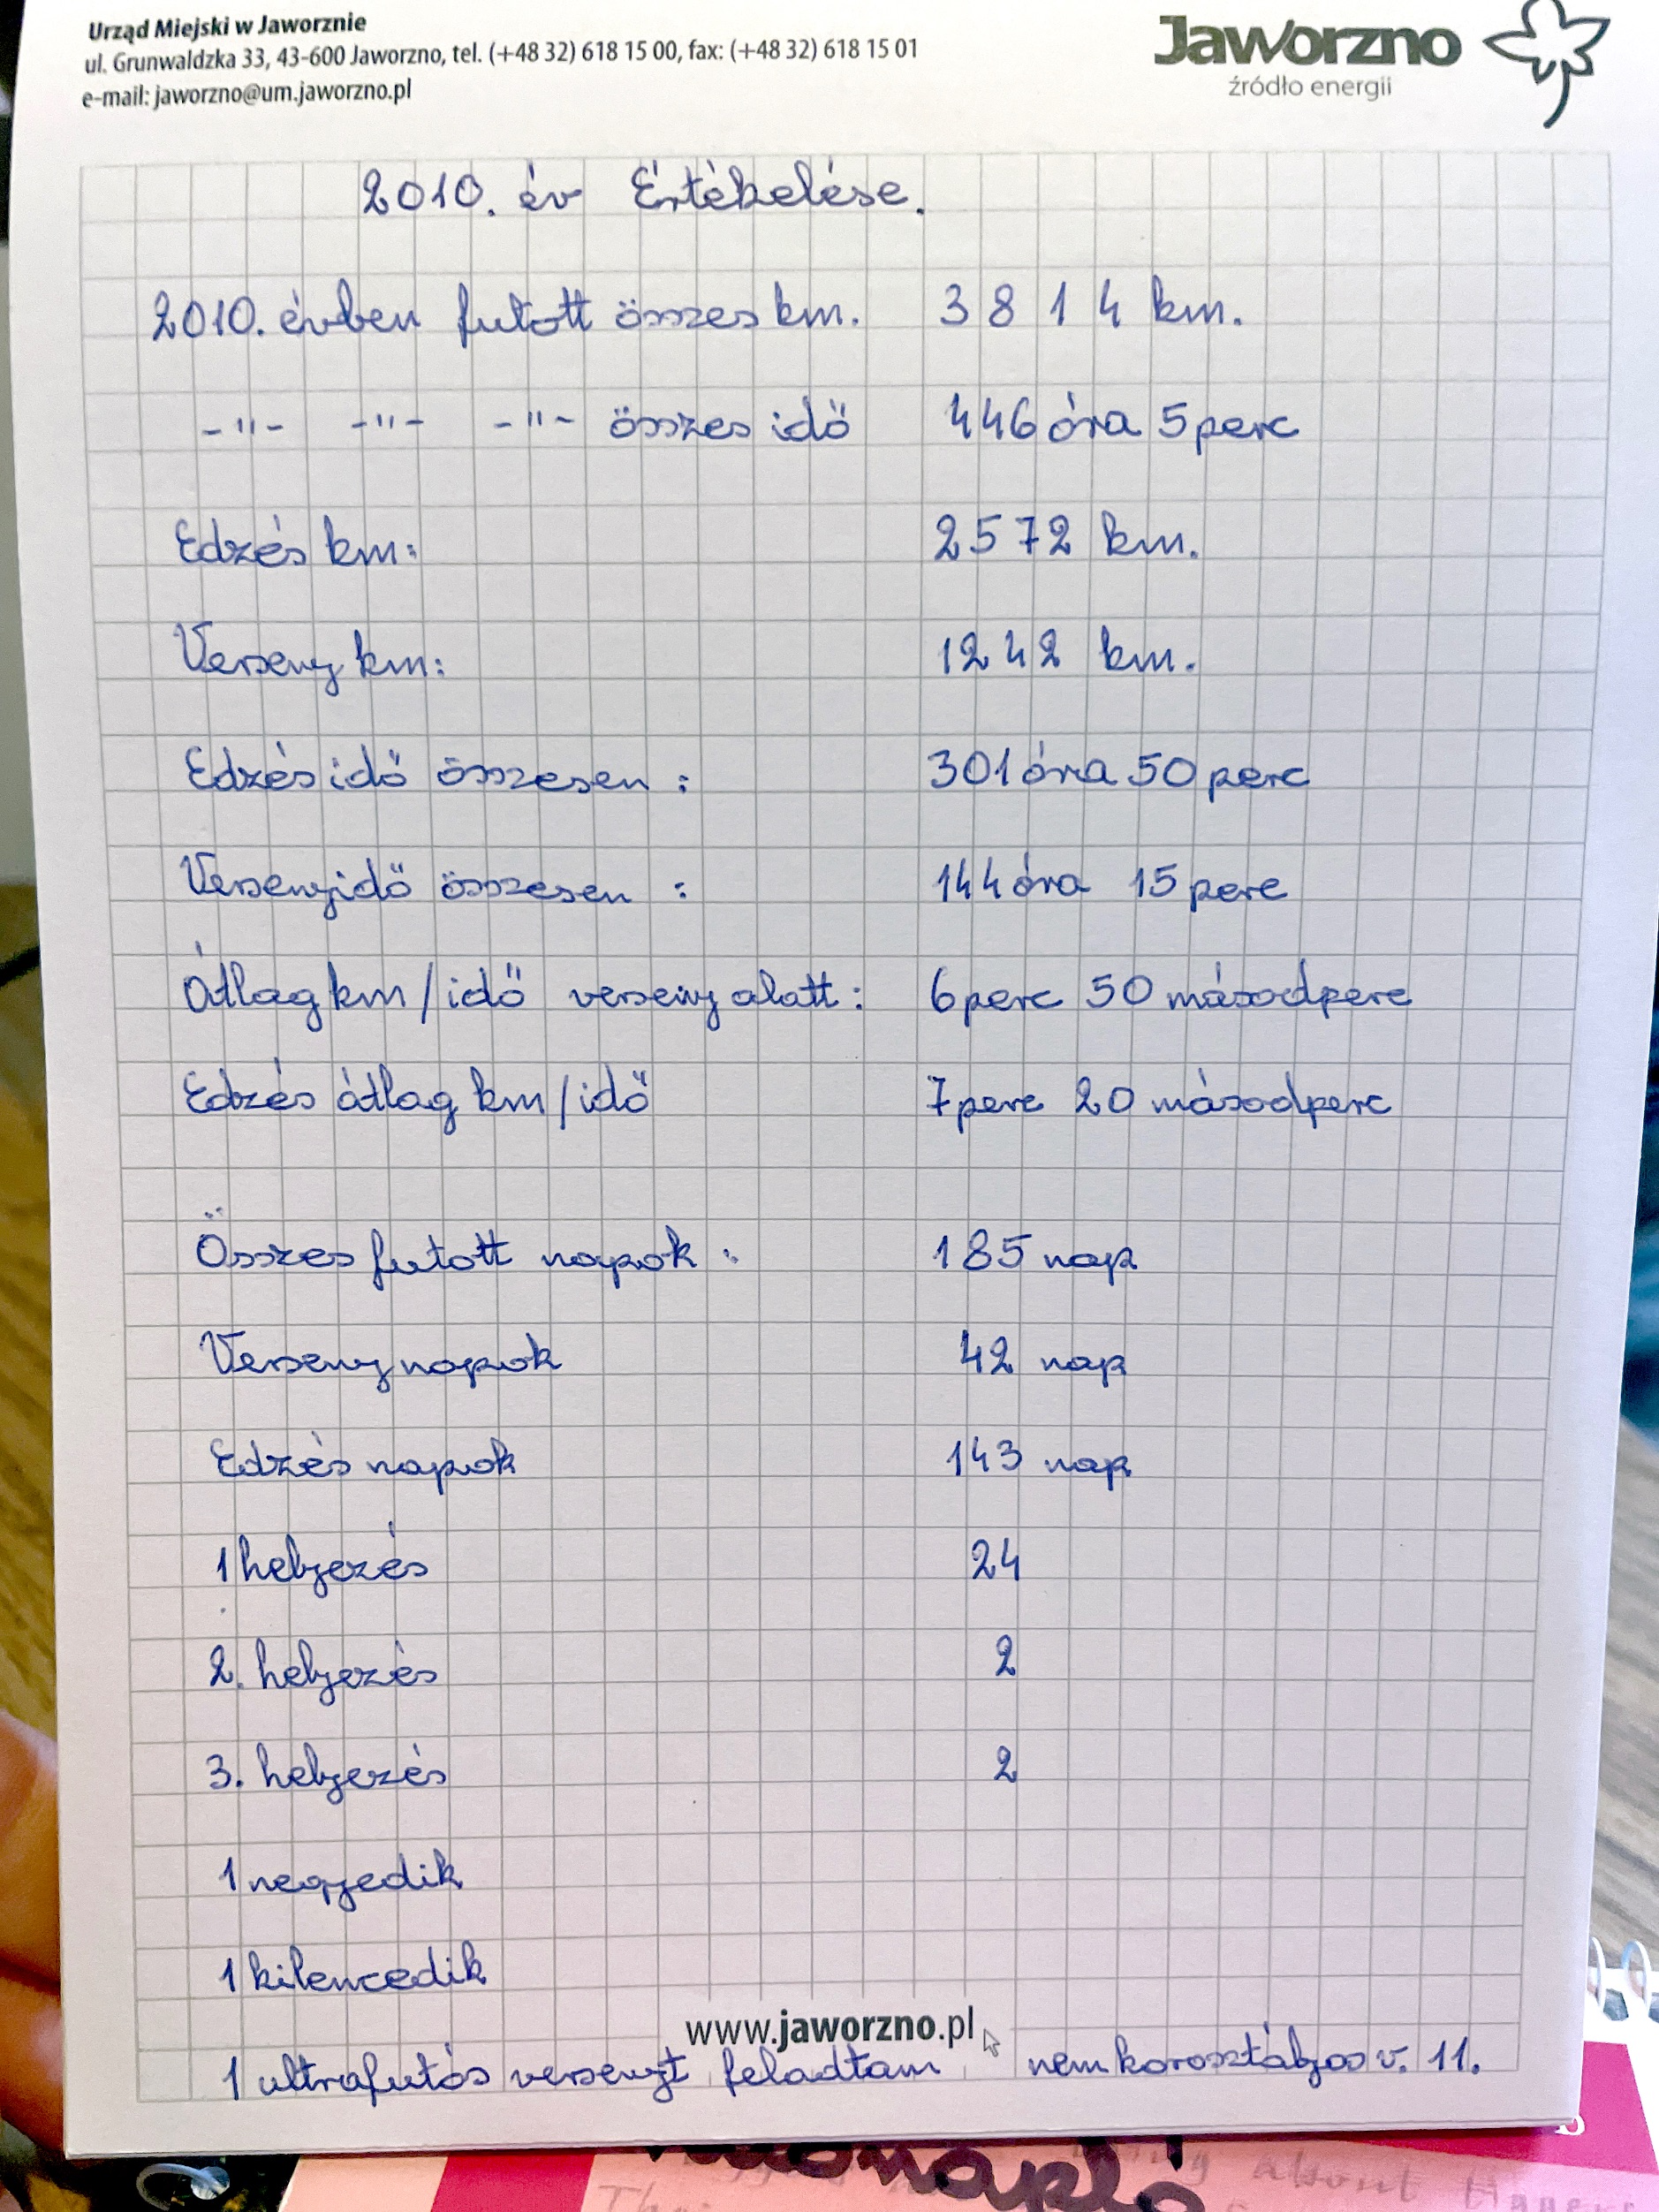 Urząd Miejski w Jaworznie
ul. Grunwaldzka 33, 43-600 Jaworzno, tel. (+48 32) 618 15 00, fax: (+48 32) 618 15 01
e-mail: jaworzno@um.jaworzno.pl
Jaworzno
źródło energii
2010. év Értékelése.
2010. évben futott összes km. 3814 km.
-"- -"- -"- összes idő 446 óra 5 perc
Edzés km: 2572 km.
Verseny km: 1242 km.
Edzés idő összesen: 301 óra 50 perc
Versenyidő összesen: 144 óra 15 perc
Átlag km/idő verseny alatt: 6 perc 50 másodperc
Edzés átlag km/idő 7 perc 20 másodperc
Összes futott napok: 185 nap
Verseny napok 42 nap
Edzés napok 143 nap
1 helyezés 24
2. helyezés 2
3. helyezés 2
1 negyedik
1 kilencedik
www.jaworzno.pl
1 ultrafutós versenyt feladtam nem korosztályos v. 11.